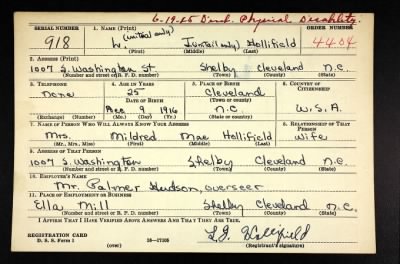 6-19-45 Disch. Physical Disability
SERIAL NUMBER 1. NAME (Print) ORDER NUMBER
918 L. (initial only) J (initial only) Hollifield 4404
(First) (Middle) (Last)
2. ADDRESS (Print)
1007 S. Washington St Shelby Cleveland N.C.
(Number and street or R. F. D. number) (Town) (County) (State)
3. TELEPHONE 4. AGE IN YEARS 5. PLACE OF BIRTH 6. COUNTRY OF CITIZENSHIP
None 25 Cleveland
DATE OF BIRTH (Town or county)
9 1916 N.C. U.S.A.
(Exchange) (Number) (Mo.) (Day) (Yr.) (State or country)
7. NAME OF PERSON WHO WILL ALWAYS KNOW YOUR ADDRESS 8. RELATIONSHIP OF THAT PERSON
Mrs. Mildred Mae Hollifield Wife
(Mr., Mrs., Miss) (First) (Middle) (Last)
9. ADDRESS OF THAT PERSON
1007 S. Washington Shelby Cleveland N.C.
(Number and street or R. F. D. number) (Town) (County) (State)
10. EMPLOYER'S NAME
Mr. Palmer Hudson, overseer
11. PLACE OF EMPLOYMENT OR BUSINESS
Ella Mill Shelby Cleveland N.C.
(Number and street or R. F. D. number) (Town) (County) (State)
I AFFIRM THAT I HAVE VERIFIED ABOVE ANSWERS AND THAT THEY ARE TRUE.
L J Hollifield
REGISTRATION CARD
D. S. S. Form 1 (over) 16-17105 (Registrant's signature)